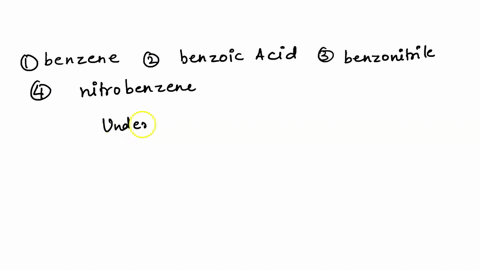 ① benzene ② benzoic Acid ③ benzonitrile
④ nitrobenzene
Under